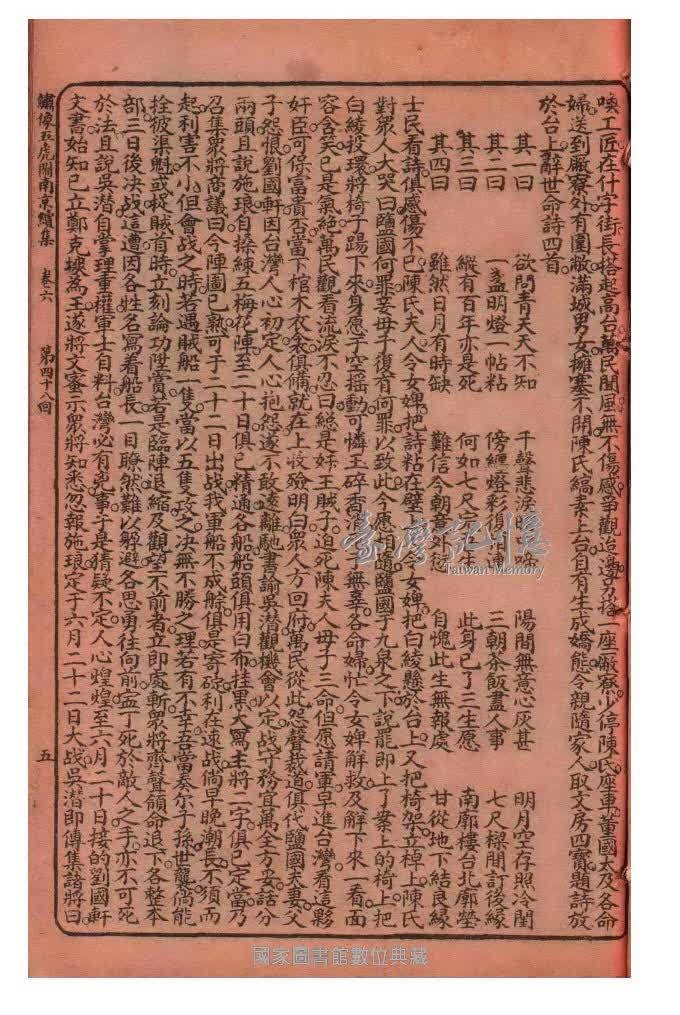 喚工匠在什字街長搭起高台萬民聞風無不傷感爭觀迨邊另搭一座廠寮少停陳氏座車董國太及各命
婦送到廠寮外有圍廠滿城男女擁塞不開陳氏縞素上台自有生成嬌態令親隨家人取文房四寶題詩放
於台上辭世命詩四首
其一曰 欲問青天天不知 千聲悲淚 陽間無意心灰甚 明月空存照冷閨
其二曰 一盞明燈一帖粘 傍纏燈彩復 三朝茶飯盡人事 七尺樑間訂後緣
其三曰 縱有百年亦是死 何如七尺 此身已了三生愿 南廓樓台北廓塋
其四曰 雖然日月有時缺 難信今朝意 自愧此生無報處 甘從地下結良緣
士民看詩俱感傷不已陳氏夫人令女婢把詩粘在壁上 女婢把白綾懸於台上又把椅架立棹上陳氏
對眾人大哭曰鹽國何罪妾母子復有何罪以致此今愿 鹽國于九泉之下說罷即上了案上的椅上把
白綾投環將椅子踢下來身愿于空搖動可憐玉碎香消 無辜各命婦忙令女婢解救及解下來一看面
容含笑已是氣絕萬民觀看流淚不忍曰總是姊王賊子迫死陳夫人母子三命但愿請軍早進台灣看這夥
奸臣可保富貴否當下棺木衣衾俱備就在上收殮明白眾人方回府萬民從此怨聲裁道俱代鹽國夫妻父
子怨恨劉國軒因台灣人心初定人心抱怨遂不敢遠離馳書諭吳潛觀機會以定战守務宜萬全方妥話分
兩頭且說施琅自操練五梅花陣至二十日俱已精通各船船頭俱用白布挂黑大寫主將二字俱已定當乃
召集眾將商議曰今陣圖已熟可于二十二日出战我軍船不成䑸俱是寄碇利在速战倘早晚潮長不須而
起利害不小但會战之時若遇賊船一隻當以五隻攻之決無不勝之理若有不幸吾當奏尔子孫世襲倘能
拴彼渠魁或捉賊有時立刻論功陞賞若是臨陣退縮及觀望不前者立即處斬眾將齊聲領命退下各整本
部三日後決战這遭因各姓名寫着船長一目瞭然難以解避各思勇往向前寧丁死於敵人之手亦不可死
於法且說吳潛自掌理重權軍士自料台灣必有兇事于是猜疑不定人心煌煌至六月二十日接的劉國軒
文書始知已立鄭克塽為王遂將文蜜示眾將知悉忽報施琅定于六月二十二日大战吳潛即傳集諸將曰
繡像五虎鬧南京續集 卷六 第四十八回 五
臺灣記憶
Taiwan Memory
國家圖書館數位典藏